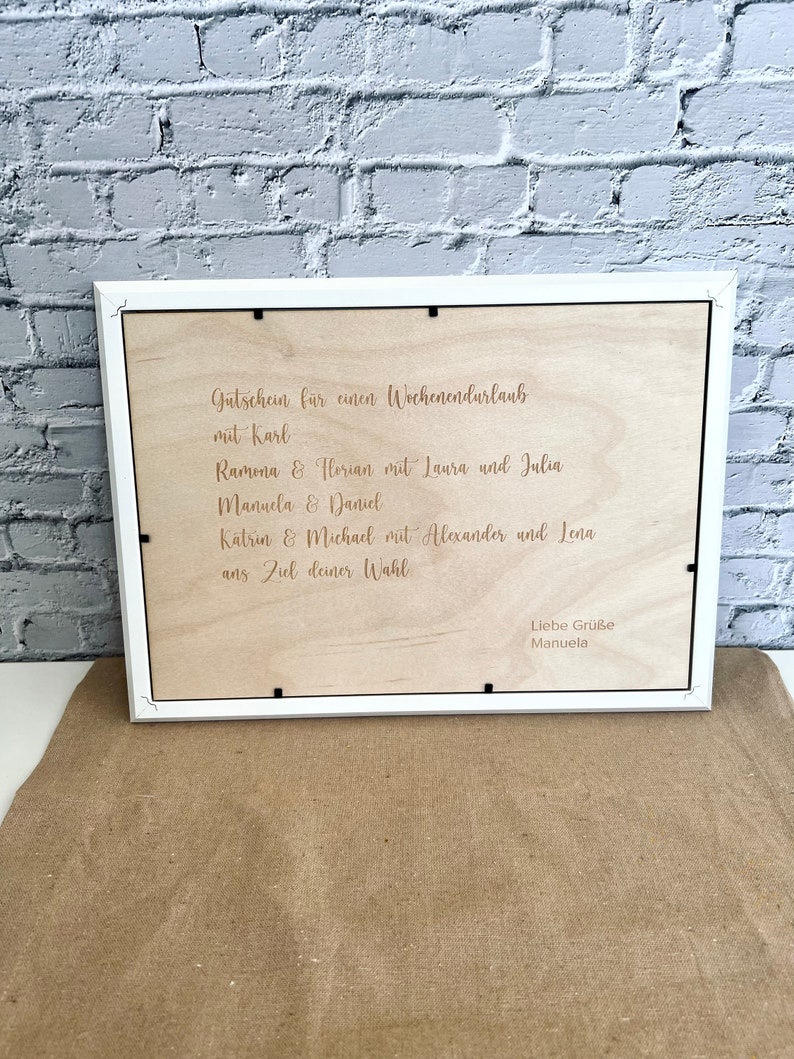 Gutschein für einen Wochenendurlaub
mit Karl
Ramona & Florian mit Laura und Julia
Manuela & Daniel
Katrin & Michael mit Alexander und Lena
ans Ziel deiner Wahl
Liebe Grüße
Manuela